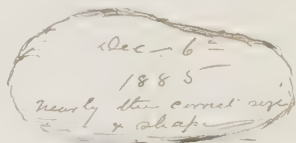 Dec - 6
1885
nearly the correct size
& shape